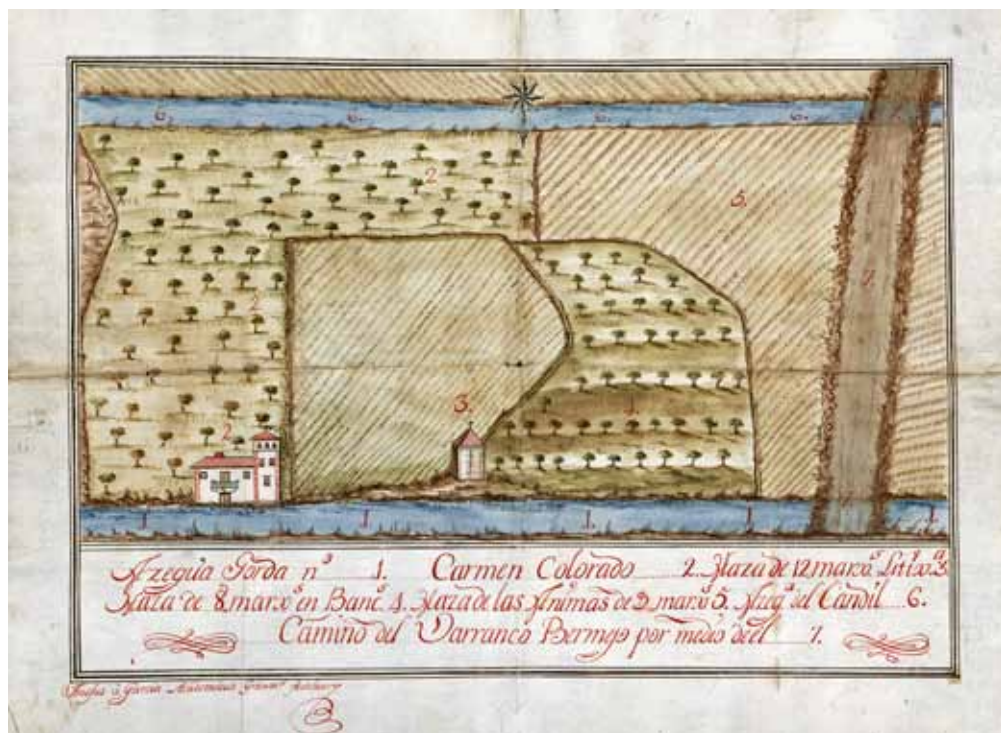 6. 6. 6. 6.
2
5.
7.
2
3.
4.
2
1 1 1. 1 1.
Azequia Gorda nº 1. Carmen Colorado 2. Haza de 12 marxˢ 3ª
Haza de 8 marxˢ en Banᶜ. 4. Haza de las Animas de 9 marxˢ 5. Azeqª del Candil 6.
Camino del Varranco Bermejo por medio de el 7.